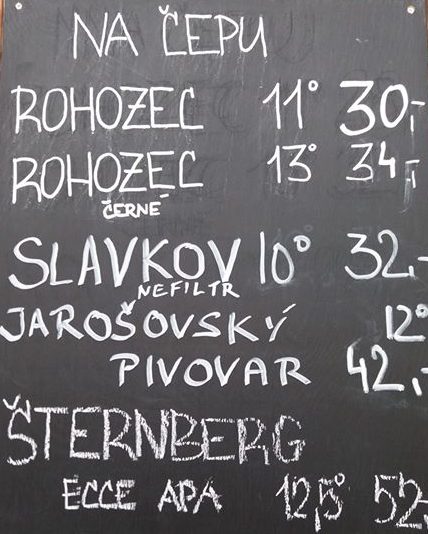 NA ČEPU
ROHOZEC 11° 30,-
ROHOZEC 13° 34,-
ČERNÉ
SLAVKOV 10° 32,-
NEFILTR
JAROŠOVSKÝ 12°
PIVOVAR 42,-
ŠTERNBERG
ECCE APA 12,5° 52,-